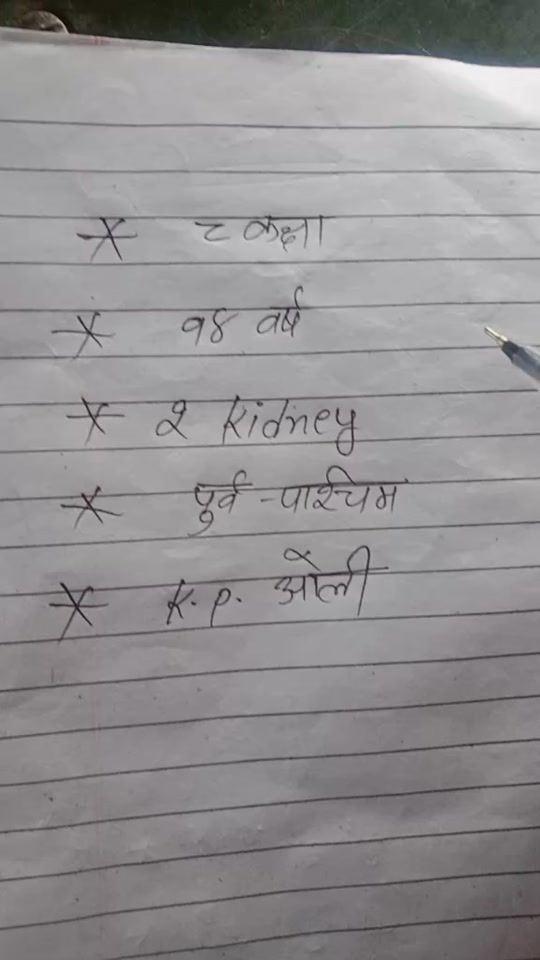 * ८ कक्षा
* १४ वर्ष
* २ Kidney
* पुर्व - पाश्चिम
* K.P. ओली